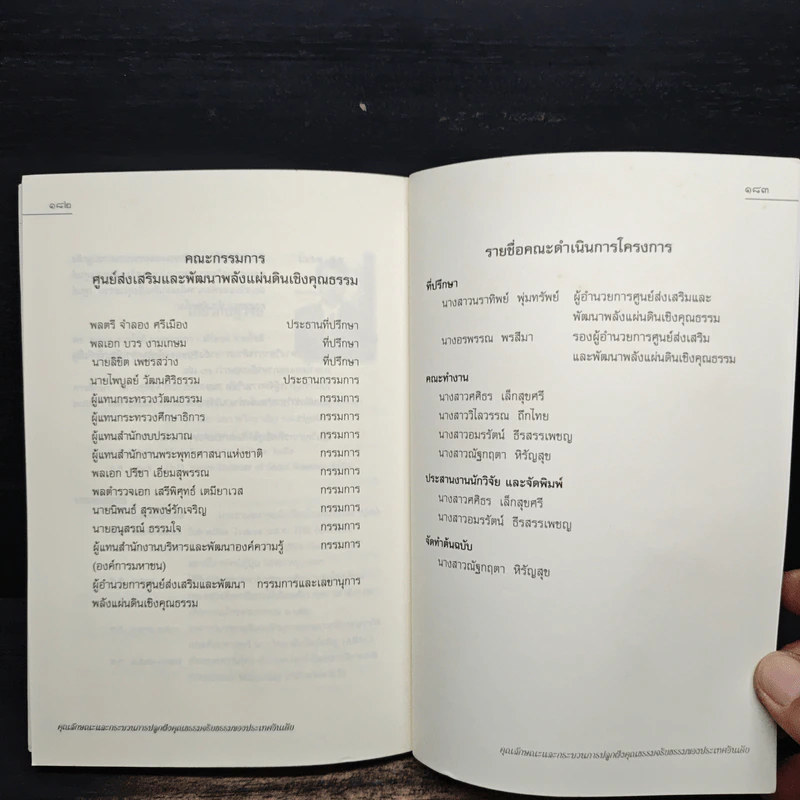 ๑๘๒
คณะกรรมการ
ศูนย์ส่งเสริมและพัฒนาพลังแผ่นดินเชิงคุณธรรม
พลตรี จำลอง ศรีเมือง ประธานที่ปรึกษา
พลเอก บวร งามเกษม ที่ปรึกษา
นายลิขิต เพชรสว่าง ที่ปรึกษา
นายไพบูลย์ วัฒนศิริธรรม ประธานกรรมการ
ผู้แทนกระทรวงวัฒนธรรม กรรมการ
ผู้แทนกระทรวงศึกษาธิการ กรรมการ
ผู้แทนสำนักงบประมาณ กรรมการ
ผู้แทนสำนักงานพระพุทธศาสนาแห่งชาติ กรรมการ
พลเอก ปรีชา เอี่ยมสุพรรณ กรรมการ
พลตำรวจเอก เสรีพิศุทธ์ เตมียาเวส กรรมการ
นายนิพนธ์ สุรพงษ์รักเจริญ กรรมการ
นายอนุสรณ์ ธรรมใจ กรรมการ
ผู้แทนสำนักงานบริหารและพัฒนาองค์ความรู้ กรรมการ
(องค์การมหาชน)
ผู้อำนวยการศูนย์ส่งเสริมและพัฒนา กรรมการและเลขานุการ
พลังแผ่นดินเชิงคุณธรรม
คุณลักษณะและกระบวนการปลูกฝังคุณธรรมจริยธรรมของประเทศอินเดีย
๑๘๓
รายชื่อคณะดำเนินการโครงการ
ที่ปรึกษา
นางสาวนราทิพย์ พุ่มทรัพย์ ผู้อำนวยการศูนย์ส่งเสริมและ
พัฒนาพลังแผ่นดินเชิงคุณธรรม
นางอรพรรณ พรสีมา รองผู้อำนวยการศูนย์ส่งเสริม
และพัฒนาพลังแผ่นดินเชิงคุณธรรม
คณะทำงาน
นางสาวศศิธร เล็กสุขศรี
นางสาววิไลวรรณ ถึกไทย
นางสาวอมรรัตน์ ธีรสรรเพชญ
นางสาวณัฐกฤตา หิรัญสุข
ประสานงานนักวิจัย และจัดพิมพ์
นางสาวศศิธร เล็กสุขศรี
นางสาวอมรรัตน์ ธีรสรรเพชญ
จัดทำต้นฉบับ
นางสาวณัฐกฤตา หิรัญสุข
คุณลักษณะและกระบวนการปลูกฝังคุณธรรมจริยธรรมของประเทศอินเดีย